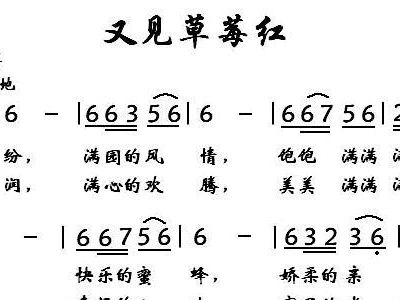 又见草莓红
地
6 － | 6 6 3 5 6 | 6 － | 6 6 7 5 6 |
纷， 满园的风 情， 饱饱 满满
润， 满心的欢 腾， 美美 满满
－ | 6 6 7 5 6 | 6 － | 6 3 2 3 6 |
快乐的蜜 蜂， 娇柔的亲